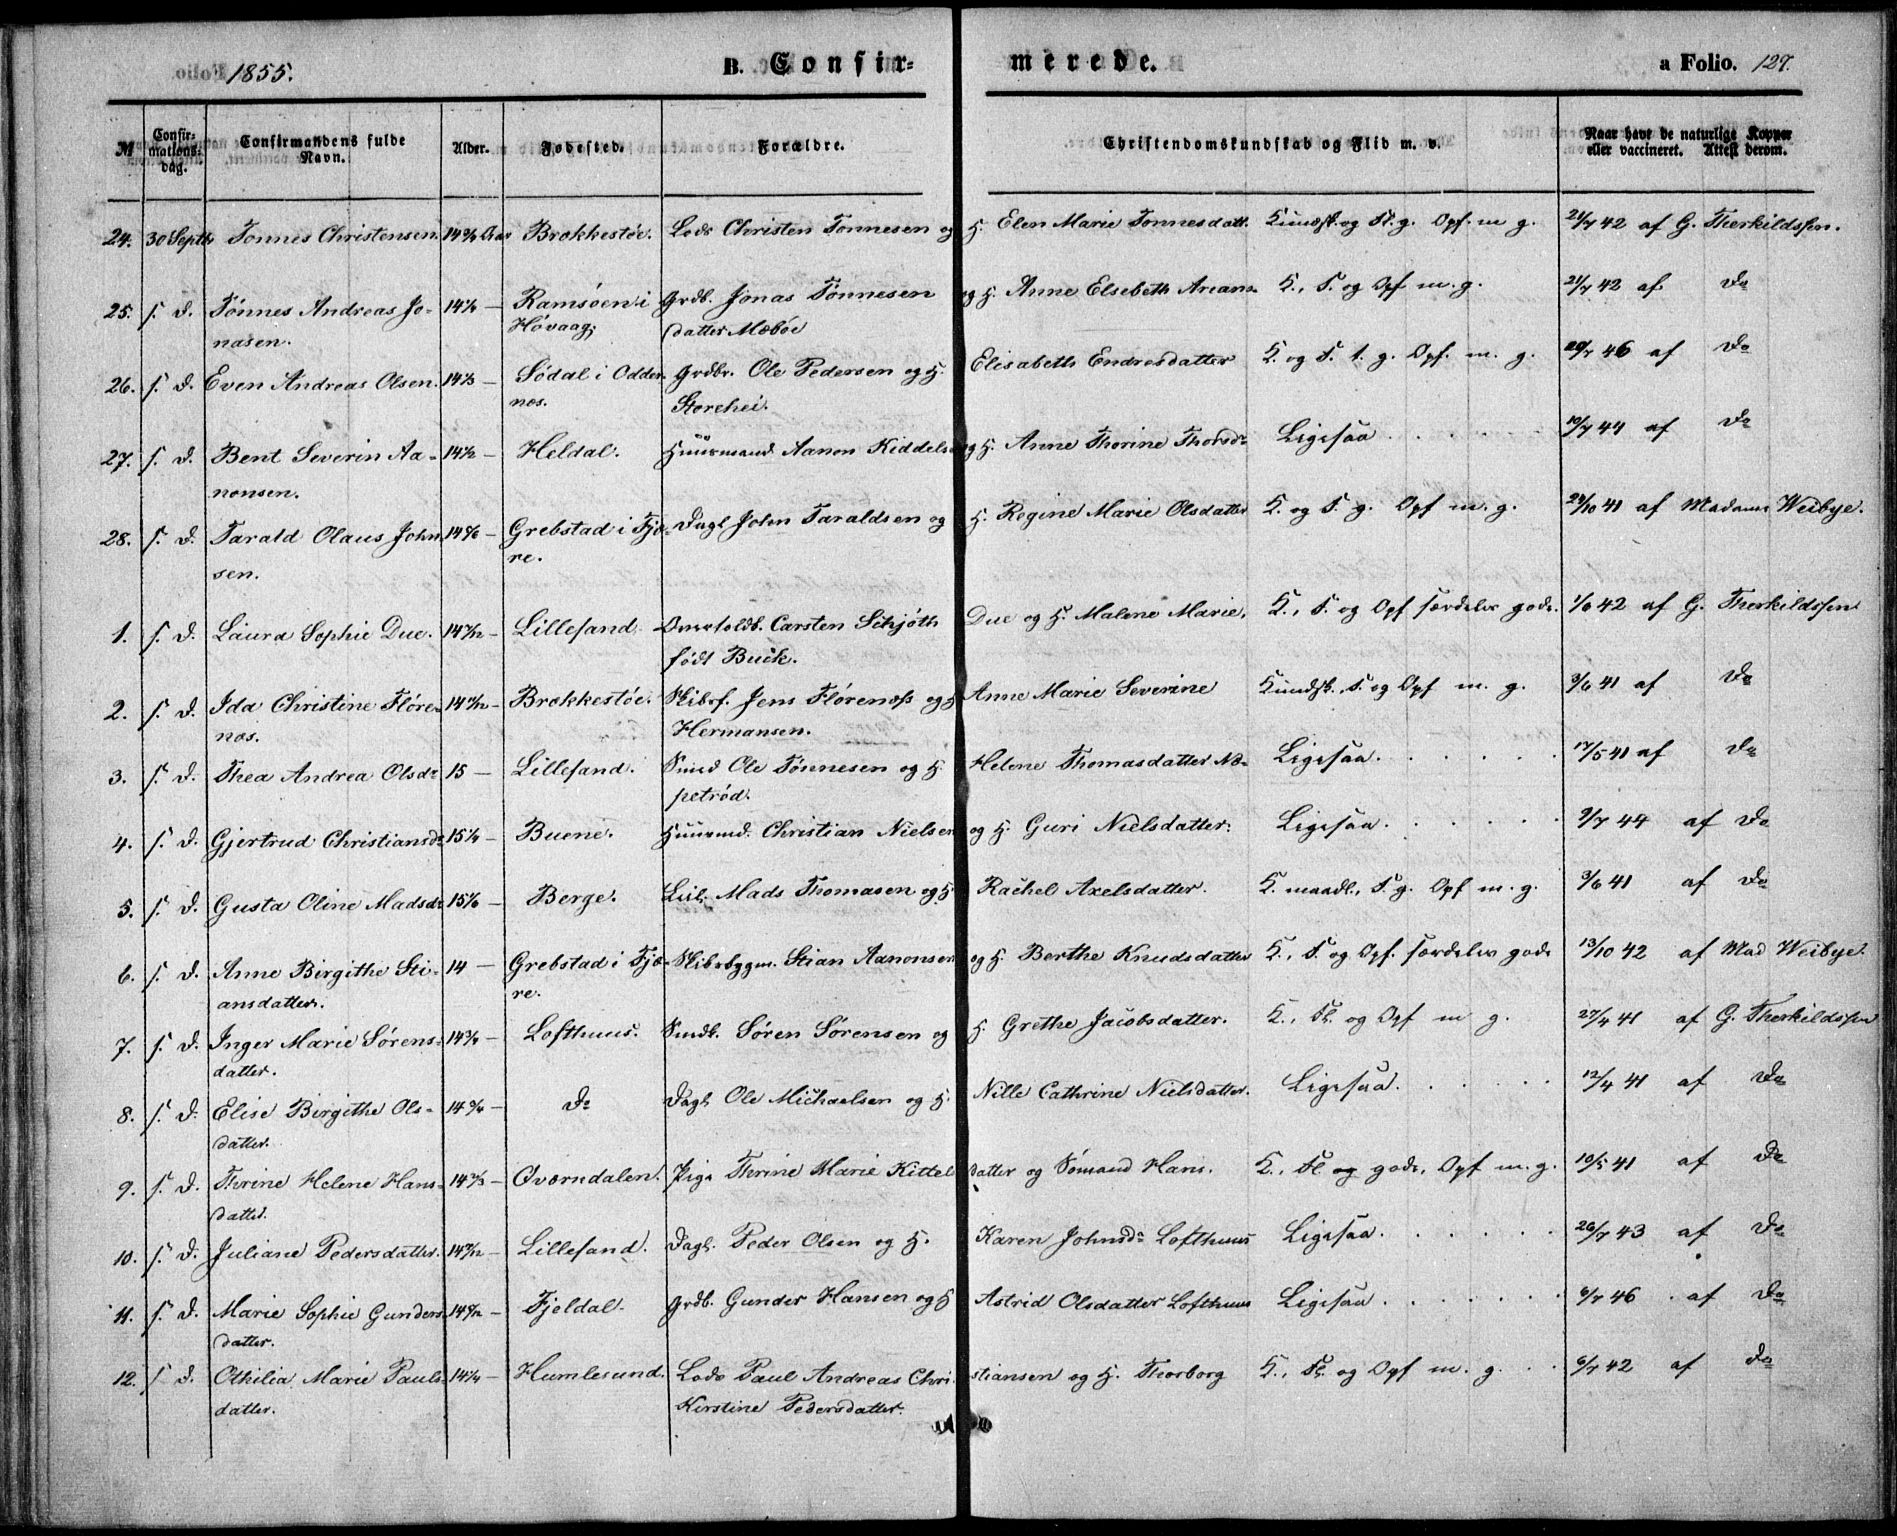 1855. B. Confir= merede. a Folio. 127.
№ Confir=mations=dag. Confirmandens fulde Navn. Alder. Fødested. Forældre. Christendomskundskab og Flid m. v. Naar havt de naturlige Kopper eller vaccineret. Attest derom.
24. 30 Septbr Tønnes Christensen. Brækkestøe. Lods Christen Tønnesen og H. Elen Marie Tønnesdatt. Kundsk. og Fl. g. Opf. m g. 21/7 42 af G. Therkildssen.
25. s. d. Tønnes Andreas Jo- 14 1/4 — Ramsøen i Grdb. Jonas Tønnesen og H. Anne Elsebeth Arians- K., F. og Opf m. g. 21/7 42 af Do
nasen. Høvaag; datter Mæbøe
26. s. d. Even Andreas Olsen. 14 1/3 — Sødal i Odder- Grdbr. Ole Pedersen og H. Elisabeth Endresdatter K. og F. t. g. Opf. m. g. 20/7 46 af Do
nes. Storehei.
27. s. d. Bent Severin Aa- 14 1/2 — Heldal. Huusmand Aanon Kiddelsen og H. Anne Thorine Thorsdr Ligesaa . . . . 10/7 44 af Do
nonsen.
28. s. d. Tarald Olaus John 14 5/6 — Grebstad i Fjæ- Dagl John Taraldsen og H. Regine Marie Olsdatter K. og F. g. Opf m. g. 23/10 41 af Madame Weibye.
sen. re.
1. s. d. Laura Sophie Due. Lillesand. Overtoldb. Carsten Schjøth Due og H. Malene Marie, K., F. og Opf særdeles gode. 1/6 42 af G. Therkildssen
født Buck.
2. s. d. Ida Christine Fløre- 14 11/12 — Brækkestøe. Skibsf. Jens Flørenæss og H Anne Marie Severine Kundsk., F. og Opf m. g. 3/6 41 af Do
næs. Hermansen.
3. s. d. Thea Andrea Olsdr 15 — Lillesand. Smed Ole Tønnesen og H Helene Thomasdatter Næ- Ligesaa. . . . . 17/5 41 af Do
petrød.
4. s. d. Gjertrud Christiansdr 15 1/4 — Buene. Huusmd. Christian Nielsen og H. Guri Nielsdatter. Ligesaa. . . . . 9/7 44 af Do
5. s. d. Gusta Oline Madsdr 15 1/6 — Berge. Leil. Mads Thomasen og H Rachel Axelsdatter. K. maadl., F. g. Opf m. g. 3/6 41 af Do
6. s. d. Anne Birgithe Sti- 14 — Grebstad i Fjæ- Skibsbygm. Stian Aanonsen og H. Berthe Knudsdatter K., F. og Opf. særdeles gode 13/10 42 af Mad Weibye.
ansdatter. re.
7. s. d. Inger Marie Sørens- 14 3/4 — Lofthuus. Smdk. Søren Sørensen og H. Grethe Jacobsdatter. K., Fl. og Opf m g. 27/4 41 af G. Therkildssen
datter.
8. s. d. Elise Birgithe Ols- 14 3/4 — Do Dagl. Ole Michaelsen og H. Nille Cathrine Nielsdatter. Ligesaa. . . . . 12/4 41 af Do
datter.
9. s. d. Thrine Helene Hans- 14 2/3 — Qværndalen. Pige Thrine Marie Kittels datter og Sømand Hans. K., Fl og gode, Opf m. g. 10/5 41 af Do
datter.
10. s. d. Juliane Pedersdatter. Lillesand. Dagl. Peder Olsen og H. Karen Johnsdr Lofthuus Ligesaa. . . . . 26/7 43 af Do
11. s. d. Marie Sophie Gunders- Fjeldal. Grdb. Gunder Hansen og H Astrid Olsdatter Lofthuus Ligesaa. . . . . 9/7 46 . af Do
datter.
12. s d. Othilia Marie Pauls- 14 1/4 — Humlesund. Lods Paul Andreas Chri- stiansen og H. Thorborg K., Fl. og Opf m. g. . . 6/7 42 af Do
datter. Kirstine Pedersdatter.